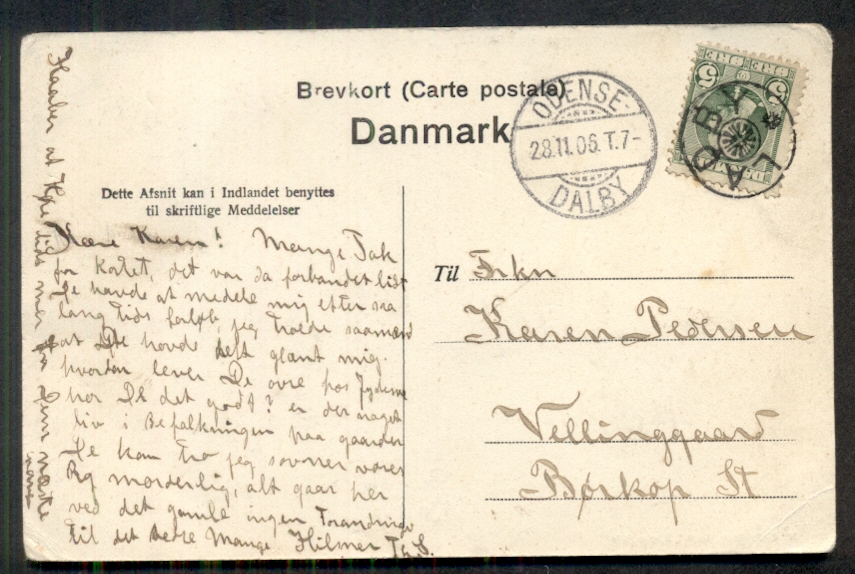 Brevkort (Carte postale)
Danmark
ODENSE-
28.11.06.T.7-
DALBY
5 ØRE ØRE 5
LAD BY
Dette Afsnit kan i Indlandet benyttes
til skriftlige Meddelelser
Kære Karen! Mange Tak
for Kortet, det var da forbandet lidt
De havde at medele mig efter saa
lang tids forløb, jeg troede saamend
at De havde helt glemt mig.
hvordan lever De ovre hos Jyderne
har De det godt? er der noget
liv i Befalkningen paa gaarden
De kan tro jeg savner vores
morderlig, alt gaar her
ved det gamle ingen Forandring
til det Mange Hilsner
Haaber at
tids mer Dem næste
Til Frkn
Karen Pedersen
Vellinggaard
Børkop St